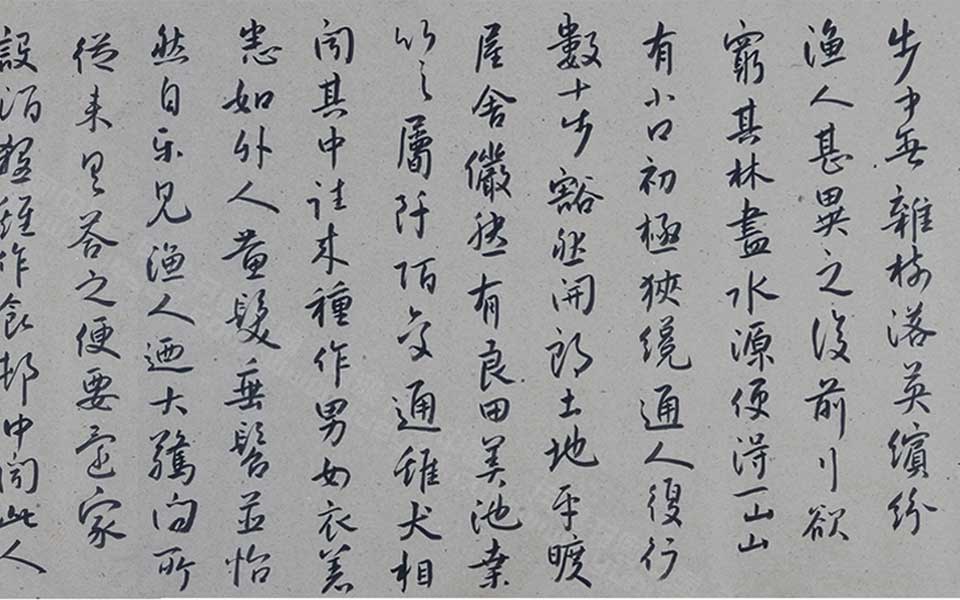 步中無雜樹落英繽紛
渔人甚異之復前行欲
窮其林盡水源便得一山山
有小口初極狹纔通人復行
數十步豁然開朗土地平曠
屋舍儼然有良田美池桒
竹之屬阡陌交通雞犬相
聞其中往来種作男女衣着
悉如外人黄髮垂髫並怡
然自乐見渔人迺大驚问所
從来具答之便要還家
設酒殺雞作食邨中聞此人